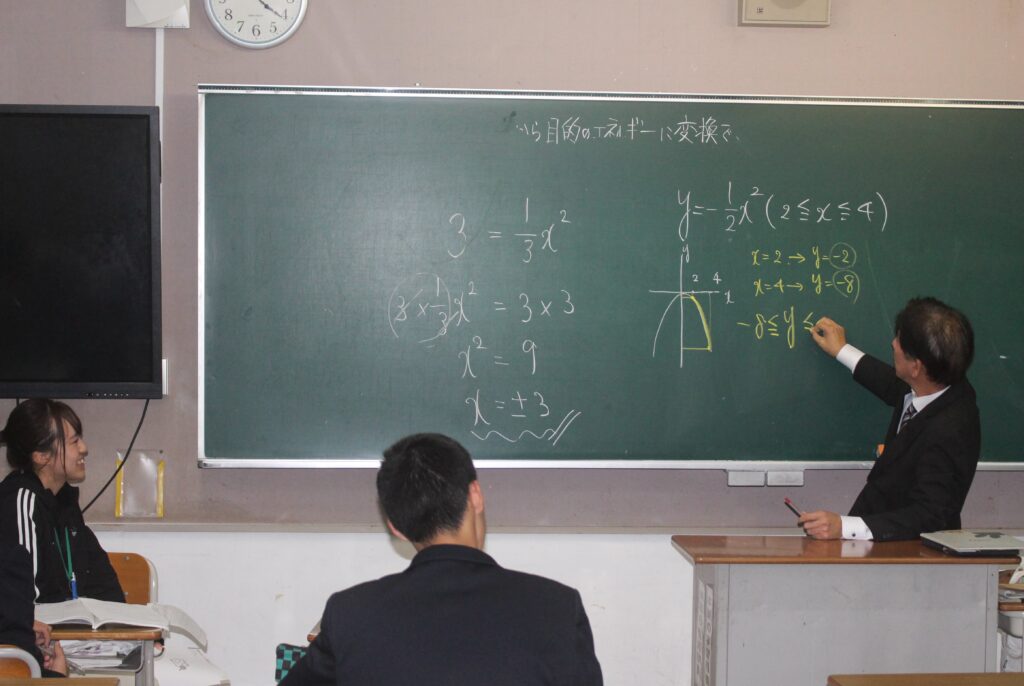 から目的のエネルギーに変換で、
3 = 1/3 x²
(3 × 1/3) x² = 3 × 3
x² = 9
x = ± 3
y = -1/2 x² (2 ≦ x ≦ 4)
y
2 4
x
x = 2 → y = -2
x = 4 → y = -8
-8 ≦ y ≦
8 7 6 5 4